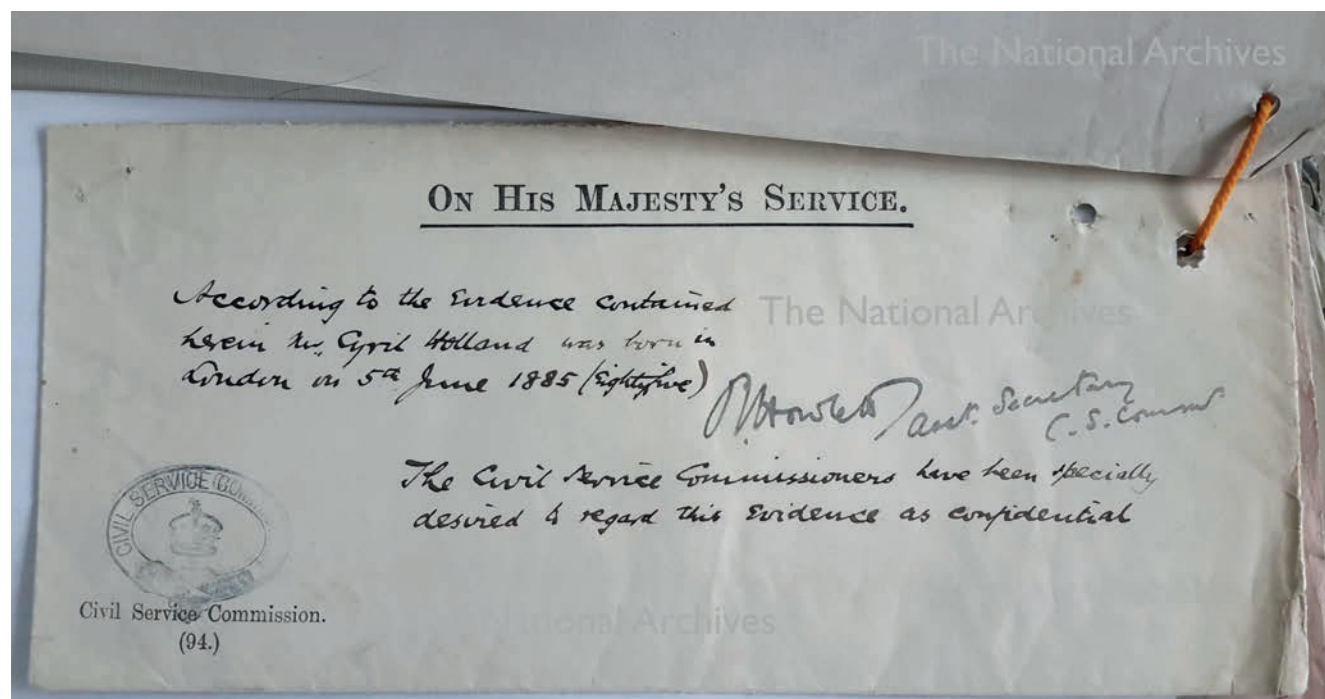 The National Archives
ON HIS MAJESTY'S SERVICE.
According to the Evidence contained
herein Mr. Cyril Holland was born in
London on 5th June 1885 (Eightyfive)
The National Archives
Howlett Asst. Secretary
C. S. Commn
The Civil Service Commissioners have been specially
desired to regard this Evidence as confidential
CIVIL SERVICE COMM
Civil Service Commission.
(94.)
National Archives